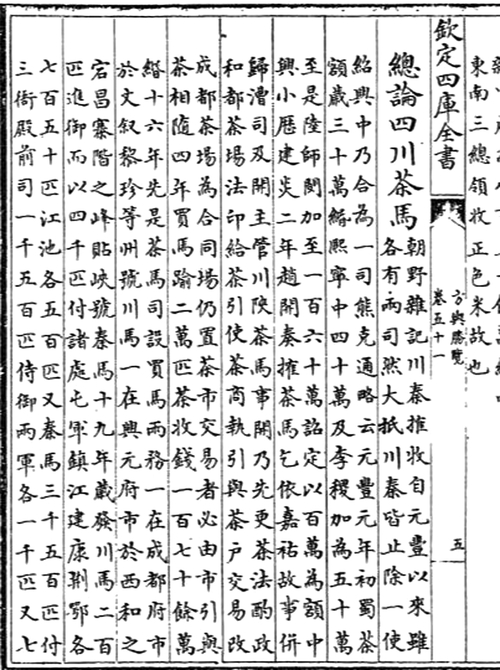 東南三總領收正色米故也
欽定四庫全書
方輿勝覽
卷五十一
五
總論四川茶馬
朝野雜記川秦榷牧自元豐以來雖
各有兩司然大抵川秦皆止除一使
紹興中乃合為一司熊克通略云元豐元年初蜀茶
額歲三十萬緡熙寧中四十萬及李稷加為五十萬
至是陸師閔加至一百六十萬詔定以百萬為額中
興小歷建炎二年趙開奏搉茶馬乞依嘉祐故事併
歸漕司及開主管川陜茶馬事開乃先更茶法酌政
和都茶場法印給茶引使茶商執引與茶户交易改
成都茶場為合同場仍置茶市交易者必由市引與
茶相隨四年買馬踰二萬匹茶收錢一百七十餘萬
緡十六年先是茶馬司設買馬兩務一在成都府市
於文叙黎珍等州號川馬一在興元府市於西和之
宕昌寨階之峰貼峽號秦馬十九年歲發川馬二百
匹進御而以四千匹付諸處屯軍鎮江建康荆鄂各
七百五十匹江池各五百匹又秦馬三千五百匹付
三衙殿前司一千五百匹侍御兩軍各一千匹又七